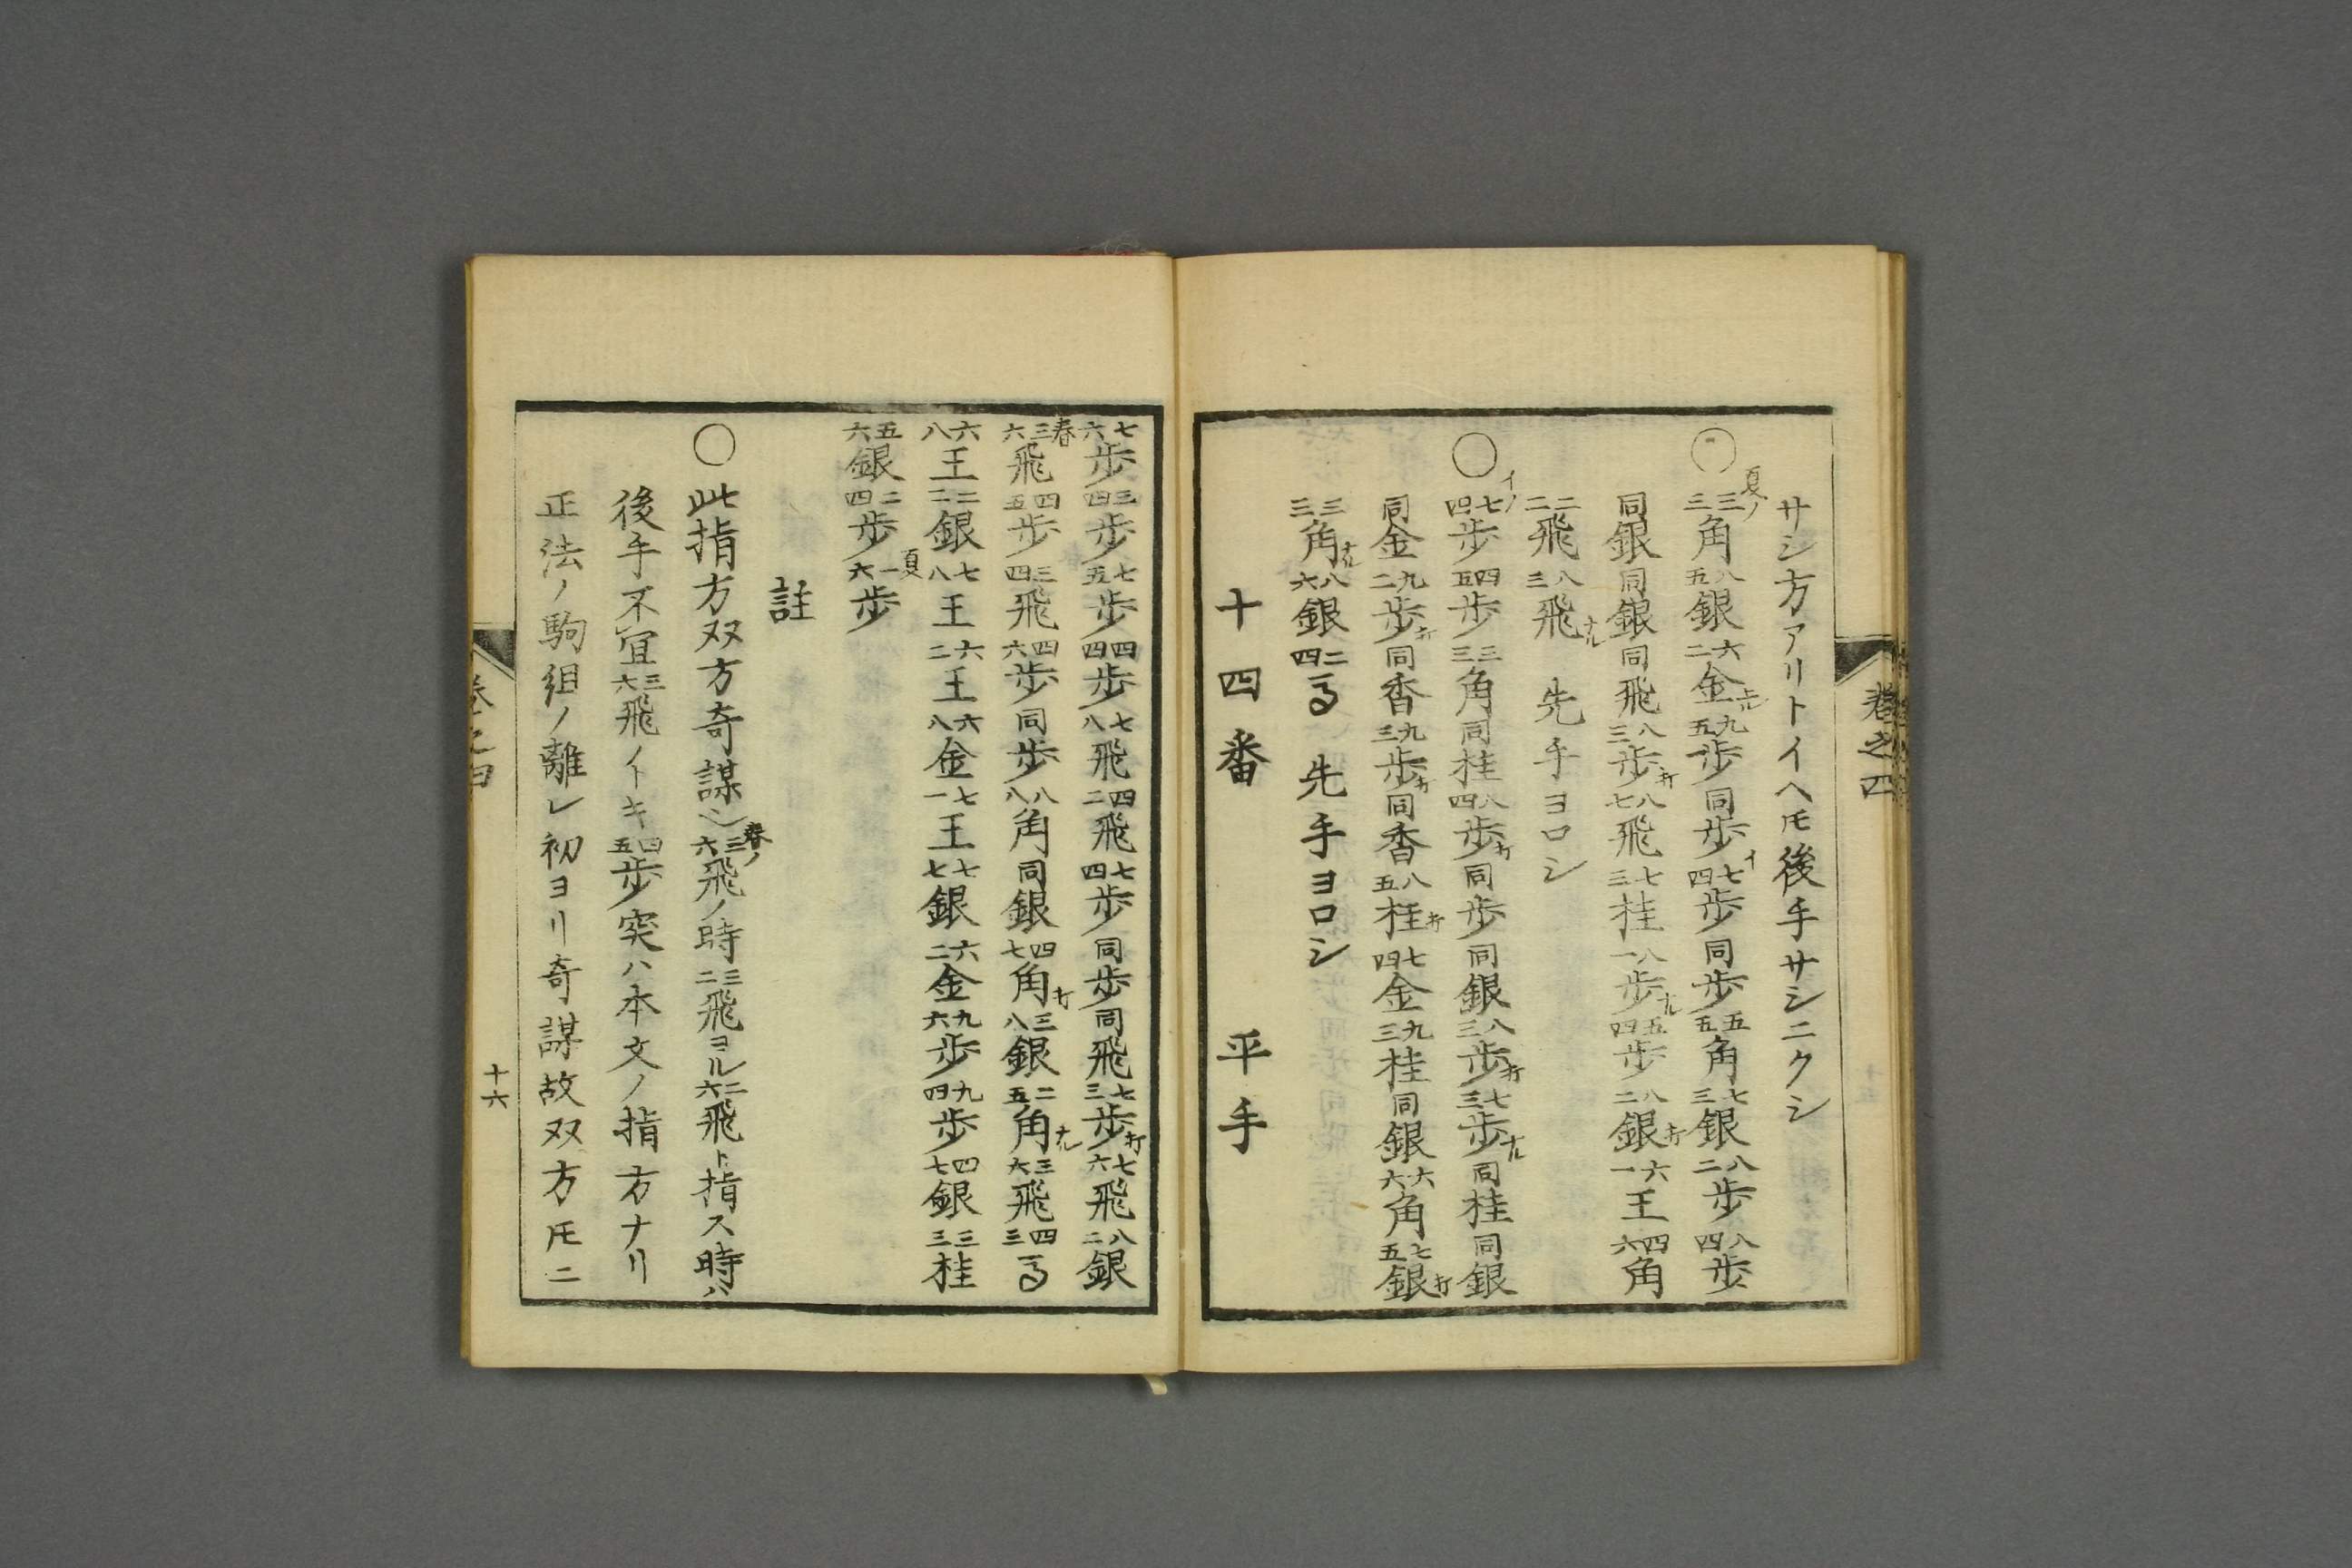 卷之四
サシ方アリトイヘ𪜈後手サシニクシ
○夏ノ三三角五八銀二六金上五九歩同歩イ四七歩同歩五五角三七銀二八歩四八歩
同銀同銀同飛三八歩打七八飛三七桂一八歩ナル四五歩二八銀打一六王六四角
二二飛三八飛ナル 先手ヨロシ
○イノ四七歩五四歩三三角同桂四八歩打同歩同銀三八歩打三七歩ナル同桂同銀
同金二九歩打同香三九歩打同香五八桂打四七金三九桂同銀六六角五七銀打
三三角ナル六八銀四二る 先手ヨロシ
十四番 平手
六七歩四三歩五七歩四四歩八七飛二四飛四七歩同歩同飛三七歩打六七飛二八銀
春六三飛五四歩四三飛六四歩同歩八八角同銀七四角打八三銀五二角ナル六三飛三四る
八六王二二銀八七王二六王八六金一七王七七銀二六金六九歩四九歩七四銀三三桂
六五銀四二歩夏六一歩
註
○此指方双方奇謀也春ノ六三飛ノ時二三飛ヨル六二飛ト指ス時ハ
後手不宜六三飛ノトキ五四歩突ハ本文ノ指方ナリ
正法ノ駒組ノ離レ初ヨリ奇謀故双方𪜈ニ
卷之四
十六